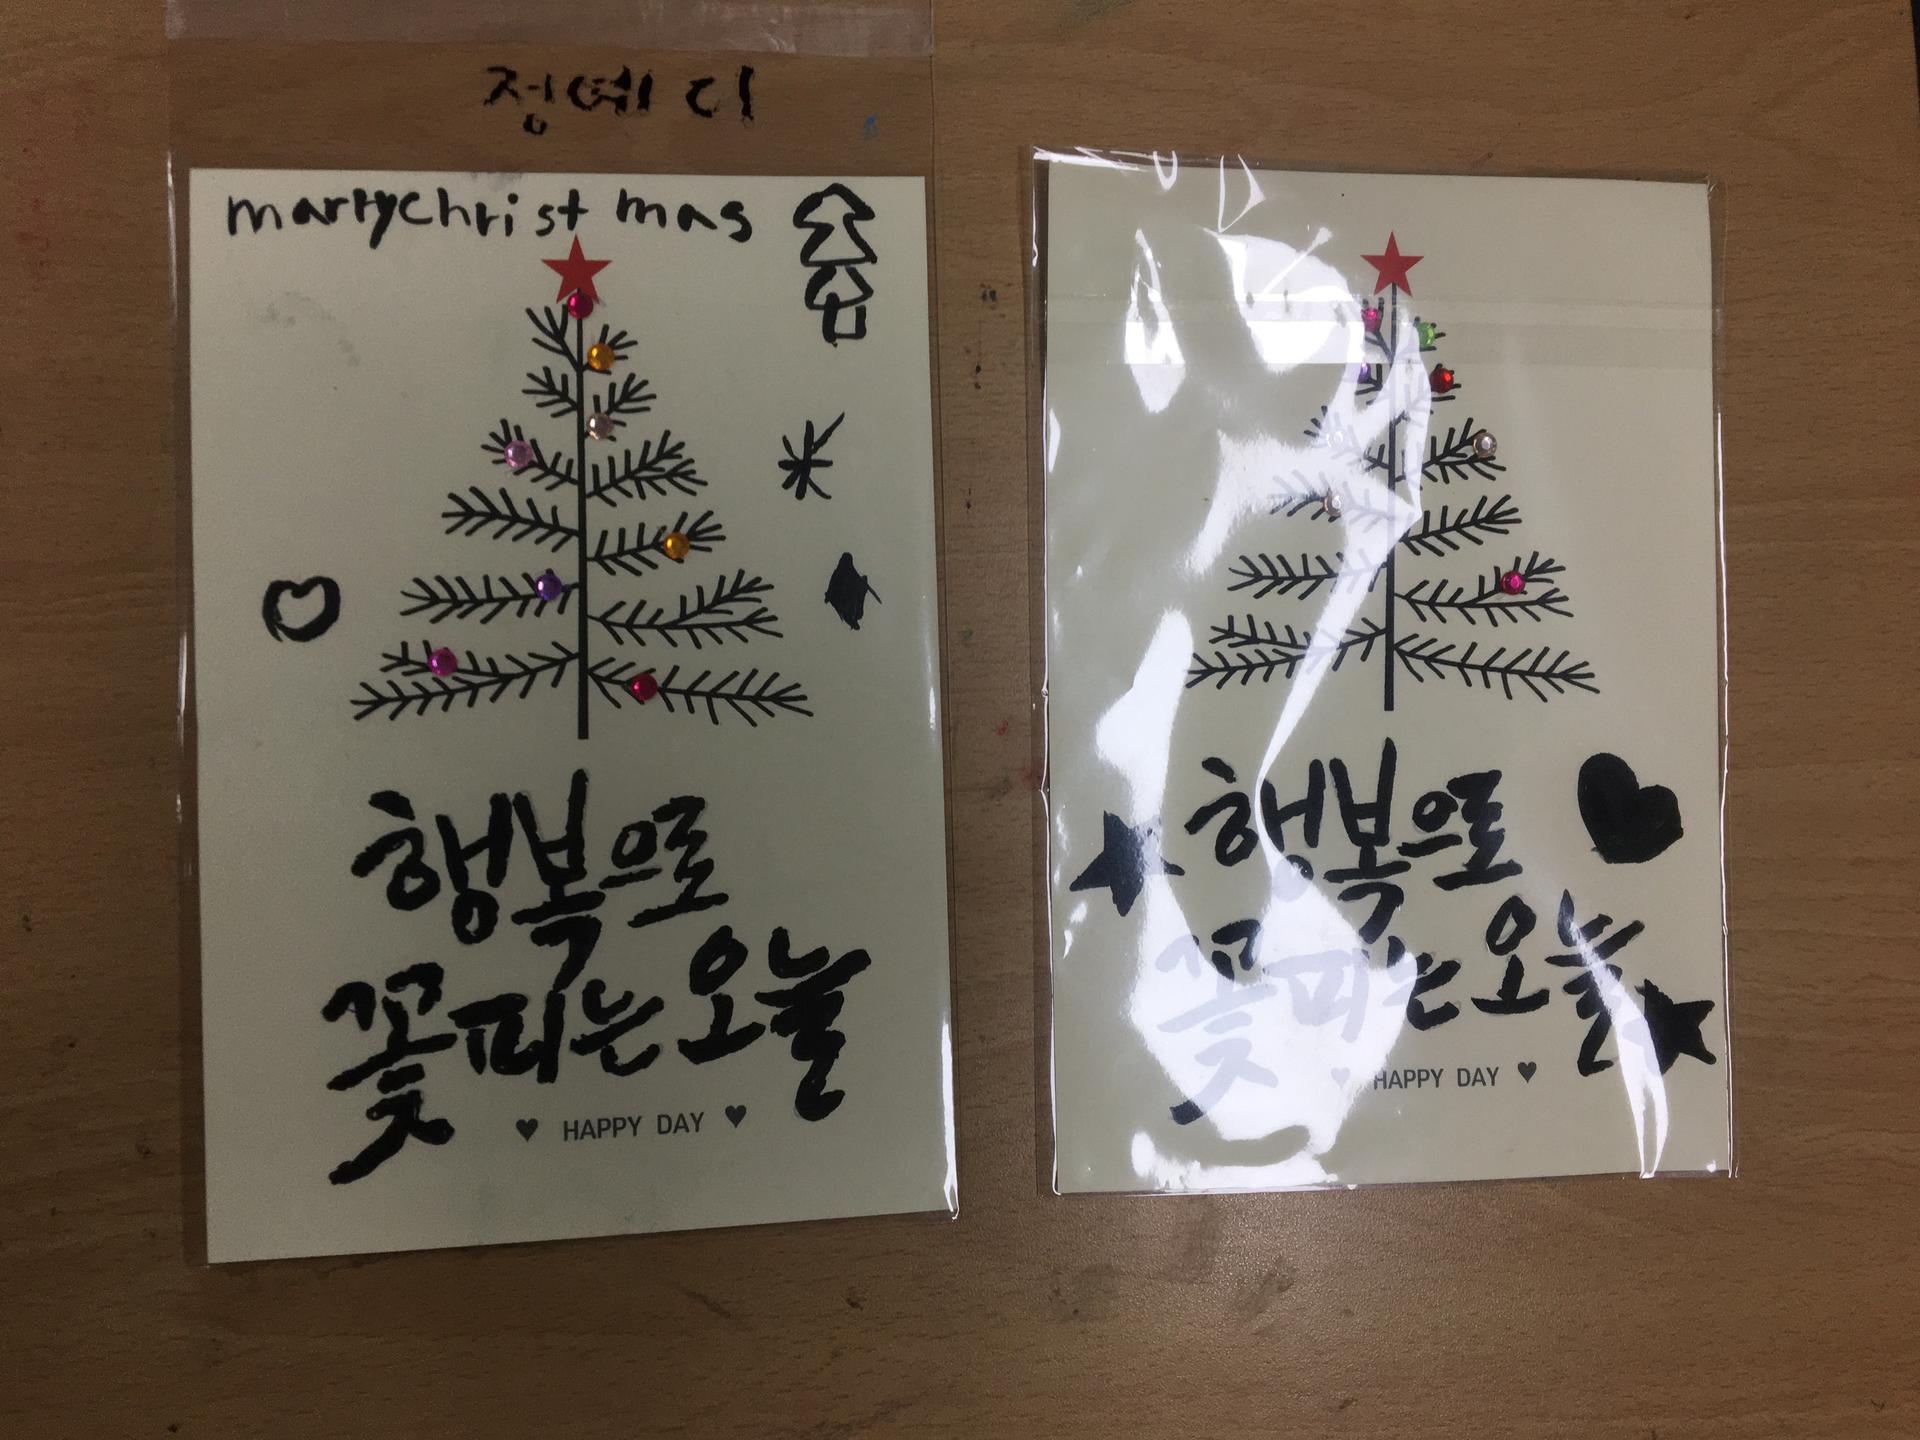 martychristmas
행복으로
꽃피는 오늘
HAPPY DAY
행복으로
꽃피는 오늘
HAPPY DAY